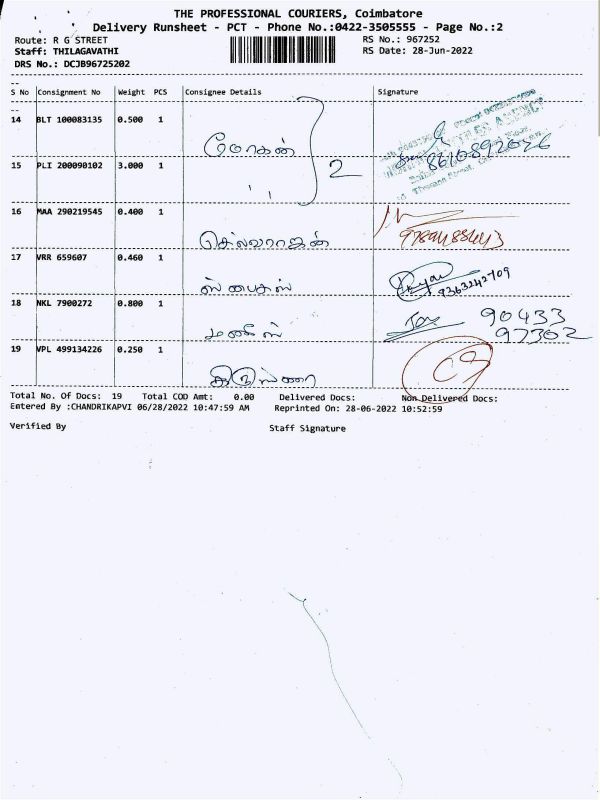 THE PROFESSIONAL COURIERS, Coimbatore
Delivery Runsheet - PCT - Phone No.:0422-3505555 - Page No.:2
Route: R G STREET RS No.: 967252
Staff: THILAGAVATHI RS Date: 28-Jun-2022
DRS No.: DCJB96725202
S No Consignment No Weight PCS Consignee Details Signature
14 BLT 100083135 0.500 1
மோகன் 8610892026
15 PLI 200090102 3.000 1
2
16 MAA 290219545 0.400 1
செல்வராஜன்
17 VRR 659607 0.460 1
ஸ்பைஸ் 9363242709
18 NKL 7900272 0.800 1 90433
97302
19 VPL 499134226 0.250 1
Total No. Of Docs: 19 Total COD Amt: 0.00 Delivered Docs: Non Delivered Docs:
Entered By :CHANDRIKAPVI 06/28/2022 10:47:59 AM Reprinted On: 28-06-2022 10:52:59
Verified By Staff Signature